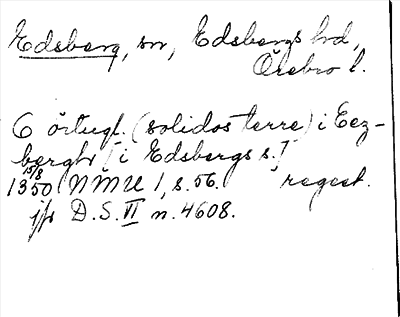 Edsberg, sn, Edsbergs hd,
Örebro l.
6 örtugl. (solidos terre) i Eez-
berghr [i Edsbergs s.]
15/8
1350 (NMU 1, s. 56. regest.
jfr D.S. VI n. 4608.